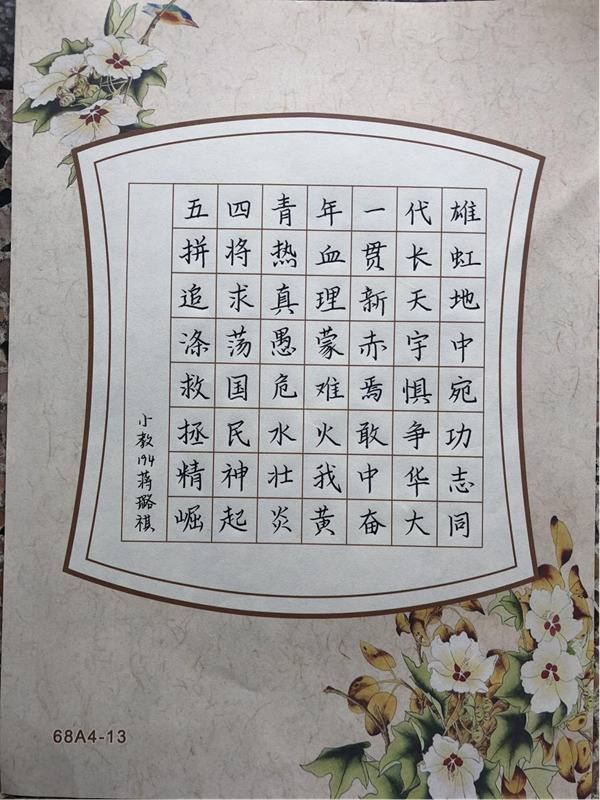 五四青年一代雄
拼将热血贯长虹
追求真理新天地
涤荡愚蒙赤宇中
救国危难焉惧宛
拯民水火敢争功
精神壮我中华志
崛起炎黄奋大同
小教194蒋璐祺
68A4-13